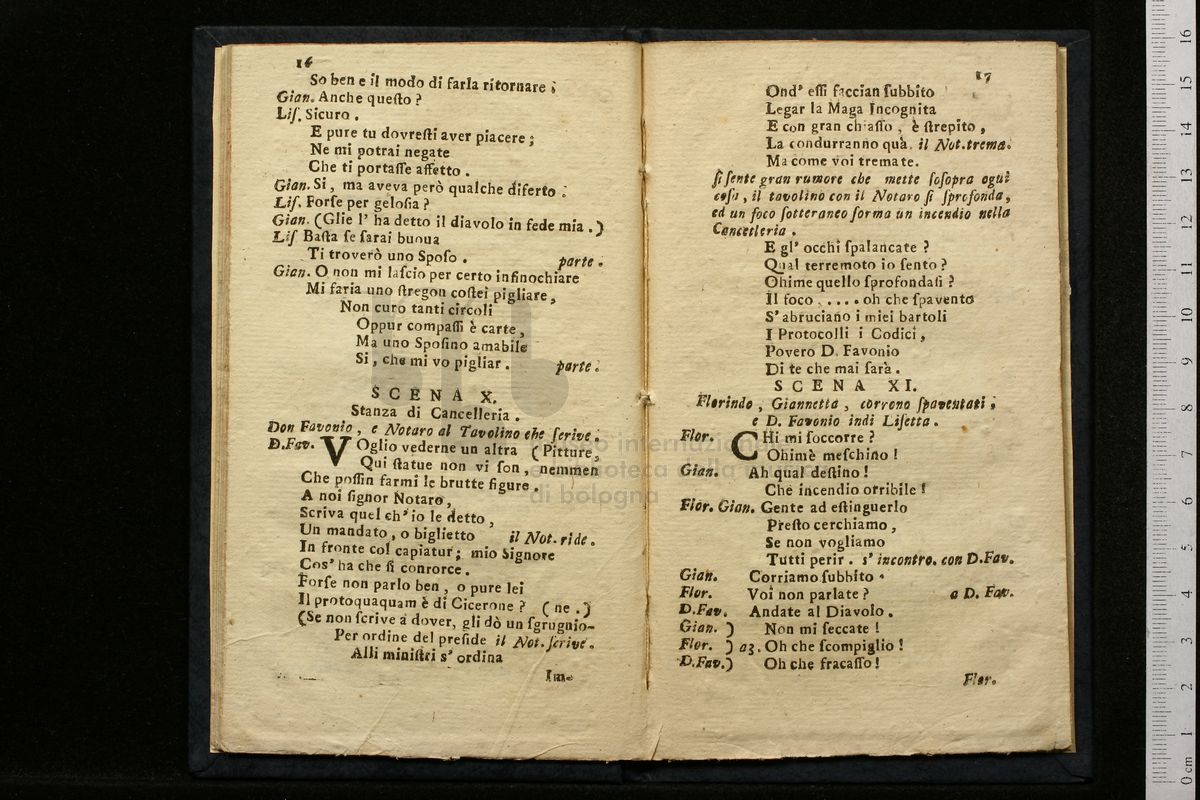 16
So ben e il modo di farla ritornare ;
Gian. Anche queſto ?
Liſ. Sicuro .
E pure tu dovreſti aver piacere ;
Ne mi potrai negate
Che ti portaſſe affetto .
Gian. Si , ma aveva però qualche diferto :
Liſ. Forſe per geloſia ?
Gian. (Glie l' ha detto il diavolo in fede mia .)
Liſ Baſta ſe ſarai buona
Ti troverò uno Spoſo . parte .
Gian. O non mi laſcio per certo infinochiare
Mi faria uno ſtregon coſtei pigliare ,
Non curo tanti circoli
Oppur compaſſi è carte ,
Ma uno Spoſino amabile
Si , che mi vo pigliar . parte .
SCENA X.
Stanza di Cancelleria .
Don Favonio , e Notaro al Tavolino che ſcrive .
D.Fav. VOglio vederne un altra ( Pitture ,
Qui ſtatue non vi ſon , nemmen
Che poſſin farmi le brutte figure .
A noi ſignor Notaro ,
Scriva quel ch' io le detto ,
Un mandato , o biglietto il Not. ride .
In fronte col capiatur ; mio Signore
Cos' ha che ſi conrorce .
Forſe non parlo ben , o pure lei
Il protoquaquam è di Cicerone ? ( ne .)
(Se non ſcrive a dover, gli dò un ſgrugnio-
Per ordine del preſide il Not. ſcrive .
Alli miniſtri s' ordina
Im-
17
Ond' eſſi faccian ſubbito
Legar la Maga Incognita
E con gran chiaſſo , è ſtrepito ,
La condurranno quà. il Not. trema.
Ma come voi tremate .
ſi ſente gran rumore che mette ſoſopra ogni
coſa , il tavolino con il Notaro ſi ſprofonda ,
ed un foco ſotteraneo forma un incendio nella
Cancelleria .
E gl' occhi ſpalancate ?
Qual terremoto io ſento ?
Ohime quello ſprofondaſi ?
Il foco . . . . . oh che ſpavento
S' abruciano i miei bartoli
I Protocolli i Codici ,
Povero D. Favonio
Di te che mai ſarà .
SCENA XI.
Florindo , Giannetta , corrono ſpaventati ,
e D. Favonio indi Liſetta .
Flor. CHi mi ſoccorre ?
Ohimè meſchino !
Gian. Ah qual deſtino !
Che incendio orribile !
Flor. Gian. Gente ad eſtinguerlo
Preſto cerchiamo ,
Se non vogliamo
Tutti perir . s' incontro. con D.Fav.
Gian. Corriamo ſubbito .
Flor. Voi non parlate ? a D. Fav.
D.Fav. Andate al Diavolo .
Gian. ) Non mi ſeccate !
Flor. ) a3. Oh che ſcompiglio !
D.Fav.) Oh che fracaſſo !
Flor.
museo internazionale
e biblioteca della musica
di bologna
0 cm 1 2 3 4 5 6 7 8 9 10 11 12 13 14 15 16